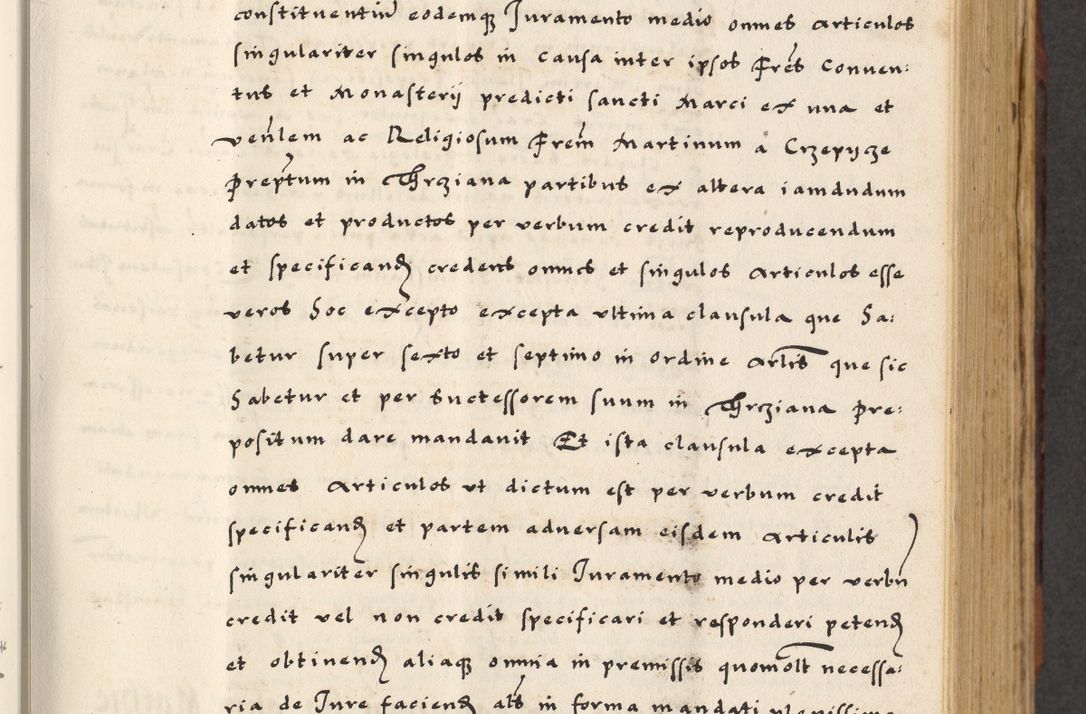 constituentiũ eodemqȝ Iuramento medio omnes articulos
singulariter singulos in causa inter ipsos Fr̃es Conven:
tus et Monasterij predicti sancti Marci ex una et
veñlem ac Religiosum Frem̃ Martinum a Crzepycze
Prep̃tum in Thrziana partibus ex altera iamdudum
datos et productos per verbum credit reproducendum
et specificand̃ credens omnes et singulos articulos esse
veros hoc excepto excepta ultima clausula que ha:
betur super sexto et septimo in ordine artl̃is que sic
habetur et per successorem suum in Thrziana pre:
positum dare mandavit Et ista clausula excepta
omnes articulos ut dictum est per verbum credit
specificand̃ et partem adversam eisdem articulis
singulariter singulis simili Iuramento medio per verbũ
credit vel non credit specificari et responderi petend̃
et obtinend̃ aliaqȝ omnia in premissis quomolt̃ necessa:
ria de Iure faciend̃ als̃ in forma mandati plenissime